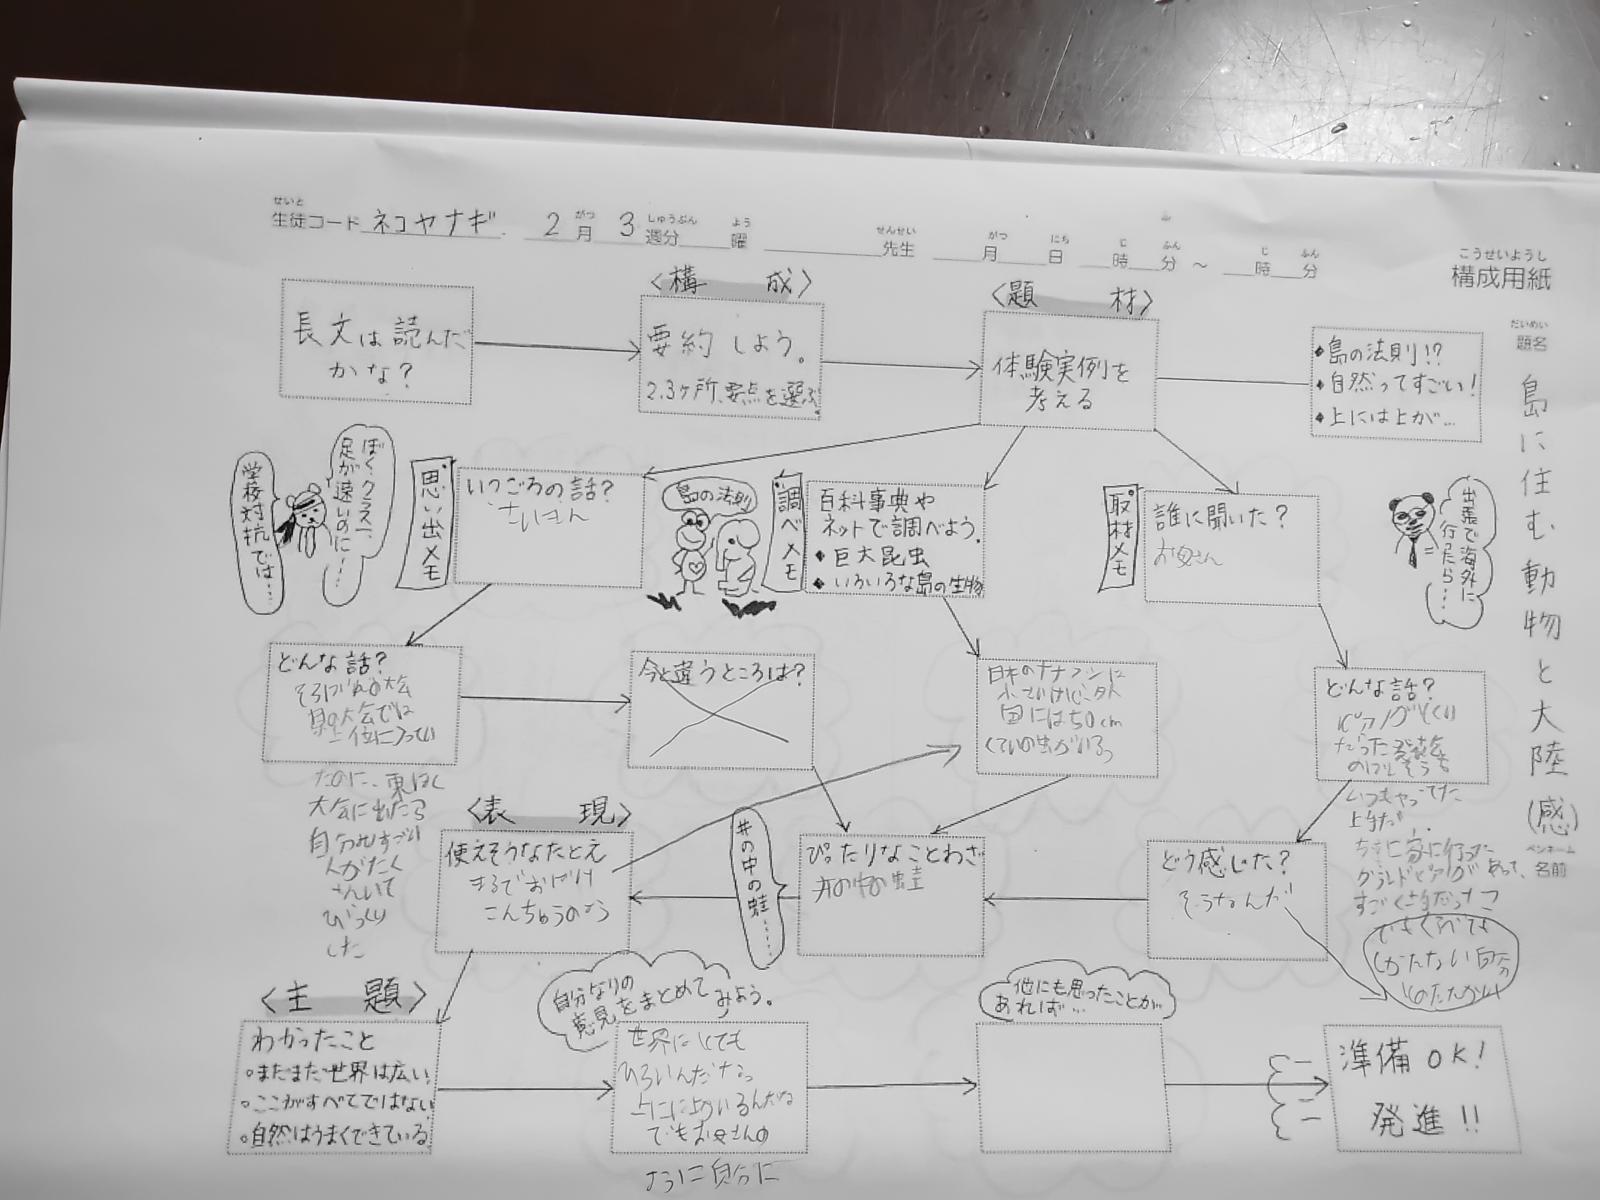 生徒コード ネコヤナギ 2月 3週分 曜 先生 月 日 時 分 ～ 時 分
せいと がつ しゅうぶん よう せんせい がつ にち じ ふん じ ふん
こうせいようし
構成用紙
だいめい
題名
島に住む動物と大陸(感)
ペンネーム
名前
長文は読んだ
かな?
〈構 成〉
要約しよう。
2.3ヶ所、要点を選ぶ。
〈題 材〉
体験実例を
考える
◆島の法則!?
◆自然ってすごい!
◆上には上が…
学校対抗では……
ぼく、クラス一、
足が速いのに……
思い出メモ
いつごろの話?
さいきん
島の法則
調べメモ
百科事典や
ネットで調べよう。
◆巨大昆虫
◆いろいろな島の生物
取材メモ
誰に聞いた?
お母さん
出張で海外に
行ったら……
どんな話?
大会
県の大会では
上位に入ってい
たのに、東ほく
大会に出たら
自分よりすごい
人がたく
さんいて
びっくり
した
今と違うところは?
日本のナナフシは
小さいけど、外
国には50cm
くらいの虫がいる
どんな話?
いつもやってた
上手だ
家に行った
グランドピアノがあって、
すごく上手だった
でもくらべても
しかたない自分
〈表 現〉
使えそうなたとえ
まるでおばけ
こんちゅうのよう
井の中の蛙……
ぴったりなことわざ
井の中の蛙
どう感じた?
そうなんだ
〈主 題〉
わかったこと
○まだまだ世界は広い。
○ここがすべてではない
○自然はうまくできている。
自分なりの
意見をまとめて
みよう。
世界はとても
ひろいんだな
上には上がいるんだな
でもお母さんの
ように自分に
他にも思ったことが
あれば…
準備OK!
発進!!